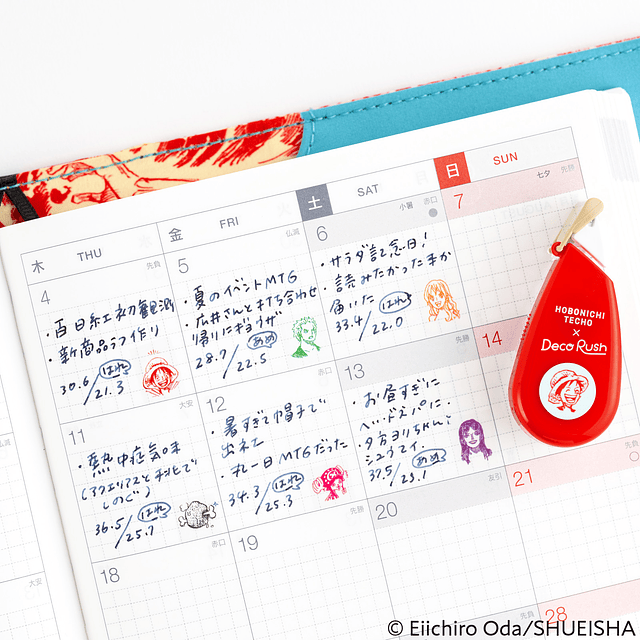 木 THU
金 FRI
土 SAT
日 SUN
4 先負
5 仏滅
6 小暑 赤口
7 七夕 先勝
・百日紅初観測
・新商品ラフ作り
30.6/21.3 はれ
・夏のイベントMTG
・広井さんと打ち合わせ
帰りにギョウザ
28.7/22.5 あめ
・サラダ記念日!
・読みたかった本が
届いた
33.4/22.0 はれ
HOBONICHI
TECHO
×
Deco Rush
11 大安
12 赤口
13 先勝
14
・熱中症気味
(アクエリアスと
しのぐ)
36.5/25.7 はれ
・暑すぎて帽子で
出社
・丸一日MTGだった
34.3/25.3 はれ
・お昼すぎに
37.5/25.1 あめ
18 赤口
19 先勝
20 友引
21 先負
28
仏滅
大安
先負
© Eiichiro Oda/SHUEISHA